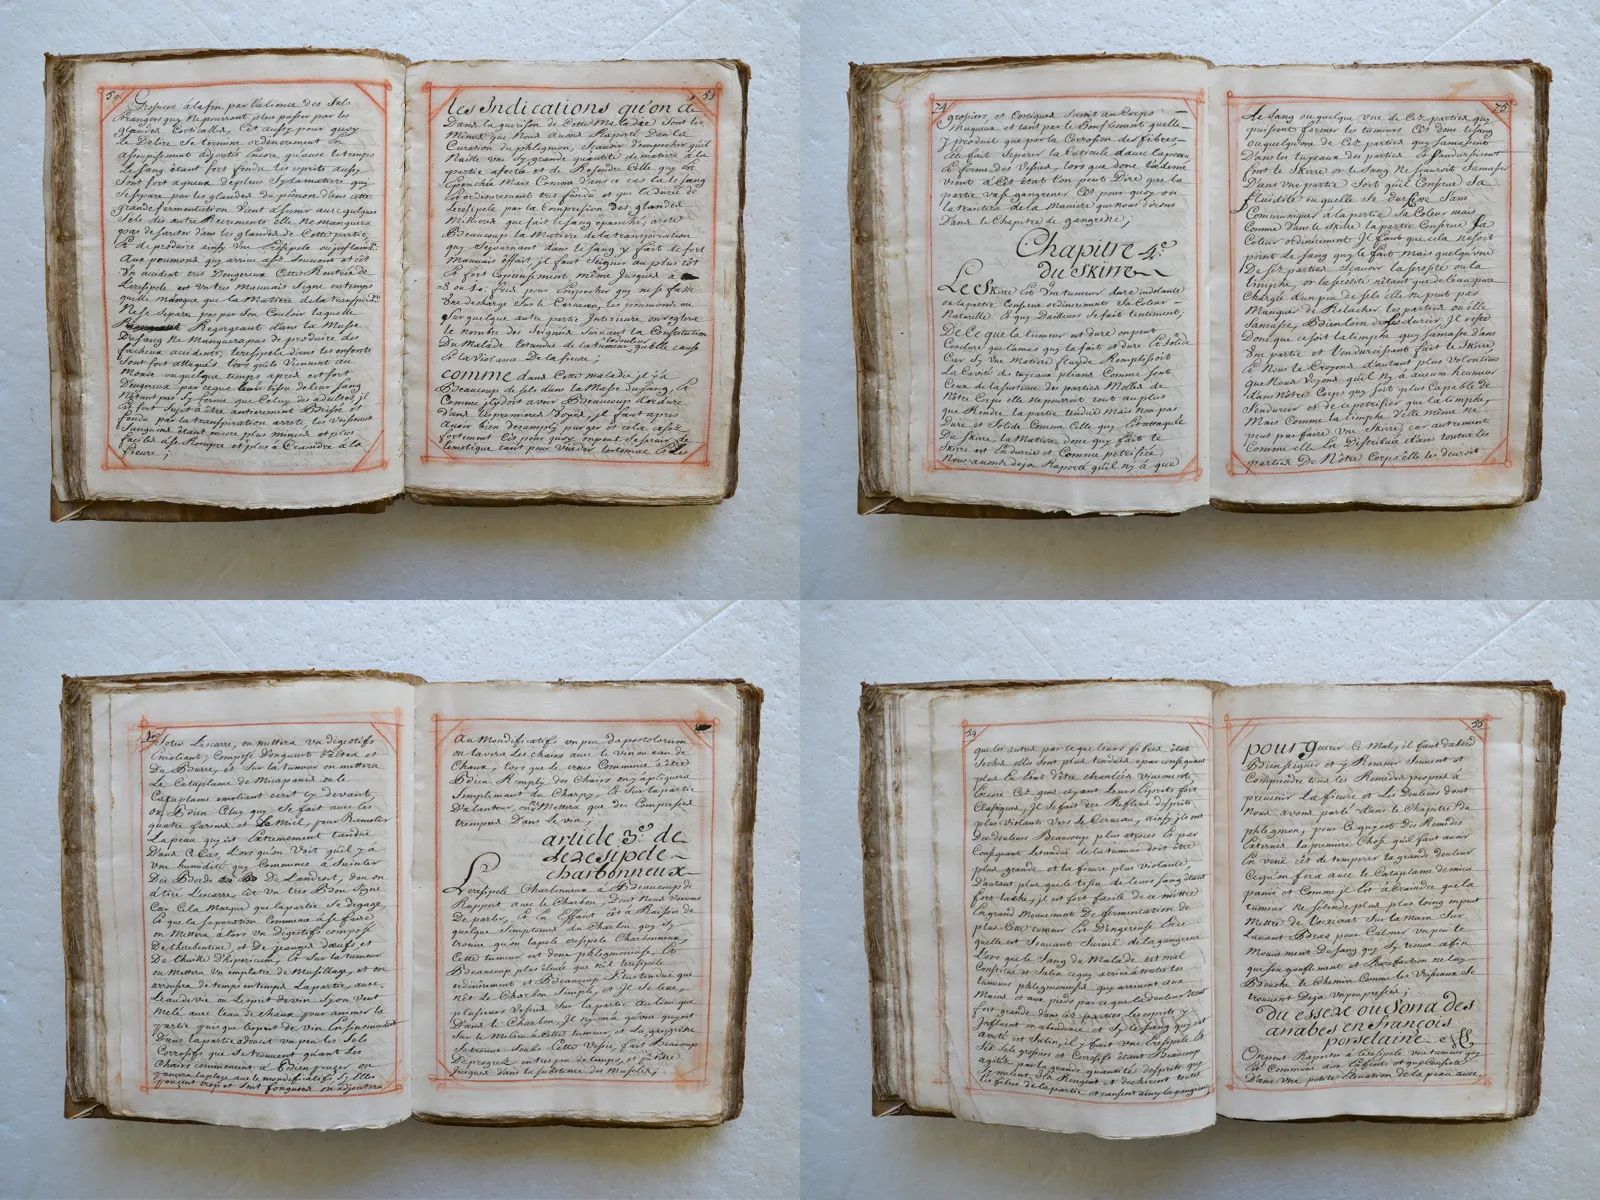 50
grossiers alafin par labsence des sels
etrangers quy ne pourront plus passer par les
glandes Corticalles, C'est aussy pour quoy
le Delire se termine ordinerement En
assupissement adjoutés encore qu'avec le temps
le sang étant fort fondu les esprits aussy
sont fort aqueux deplus sy la matiere quy
se separe par les glandes du pomon dans cette
grande fermentation vient a s'unir avec quelques
sels des autre Recrements elle ne manquera
pas de sauter dans les glandes de Cette partie,
Et de produire ainsy une Eresipele ou inflam.
Aux poumons quy arrive assez souvent et c'est
Un accident tres Dangereux Cette Rentrée de
Leresipele est un tres Mauvais signe en temps
quelle marque que la Matiere de la transpira.
Ne se separe pas par son Couloir laquelle
Regorgeant dans la Masse
Du sang ne Manquera pas de produire des
facheux accidents, leresipele dans les enfants
sont fort attaqués lors quils viennent au
Monde ou quelque temps apres est fort
Dangereux par ceque leur tissu de leur sang
N'étant pas sy forme que Celuy des adultes, il
Est fort sujet a être entierement Brisée et
fondu par la transpiration arreté, les vaisseaux
sanguins étant encore plus minces et plus
faciles ase Rompre et plus a Craindre a la
fievre;
51
les Indications qu'on a
Dans la guerison de Cette Maladie sont les
Mêmes que Nous avons Raporté Dans la
Curation du phlegmon, scavoir d'empecher qu'il
N'aille une sy grande quantité de matiere a la
partie afectée et de Resoudre Celle quy Est
Epanchée Mais Comme dans ce cas la le sang
Est ordinerement tres fondu et que la durée de
Leresipele par la Compression des glandes
Millieres que fait le sang epanché, arrete
Beaucoup la Matiere de la transpiration
quy sejournant dans le sang y fait de fort
Mauvais effait, il faut seigner au plus tôt
Et fort Copieusement même jusques a
8 ou 10 fois pour Empecher quy ne se fasse
Une decharge sur le Cerveau, les poumons ou
sur quelque autre partie Interieure on reglera
le nombre des seignées suivant la Constitution
Du Malade letendue de la tumeur, la douleur qu'elle cause
Et la Violance De la fievre;
comme dans Cette maladie il y a
Beaucoup de sels dans la Masse du sang, Et
Comme il y doit avoir Beaucoup d'ordure
dans les premieres voyes, il faut apres
Avoir bien desamply purger et cela assez
fortement C'est pour quoy on peut se servir de
lemetique tant pour vuider lestomac
74
grossiers, et Corrosives
Muqueux et tant par le Gonflement quelle
y produit que par la Corrosion des fibres
elle fait separer la Cuticule davec la peau
et forme des Vessies, lors que donc l'oedeme
vient a Cet état l'on peut Dire que la
partie va se gangrener C'est pour quoy on
la traitera de la Maniere que nous dirons
Dans le Chapitre de gangrene;
Chapitre 4e
du skirre
Le Skire Est Une tumeur dure indolante
ou la partie Conserve ordinerement sa Couleur
Naturelle Et quy Dailleurs se fait lentement,
De Ce que la tumeur est dure on peut
Conclure que lamas quy la fait et dure Et solide
Car sy une Matiere fluide Remplissoit
La Cavité des tuyeaux plians Comme sont
Ceux de la surface des parties Molles de
Nôtre Corps elle ne pouroit tout au plus
que Rendre la partie tendue Mais non pas
Dure et solide Comme Celle quy Est attaquée
Du skire, la Matiere donc quy fait le
Skire est Endurcie et Comme petrifiée,
Nous avons deja Raporté qu'il n'y a que
75
Le sang ou quelque une de Ces parties quy
puissent former les tumeurs C'est donc le sang
ou quelqu'une de Ces parties quy samassent
Dans les tuyeaux des parties Et sendurcissent
font le Skirre or le sang Ne scauroit samasser
Dans une partie soit quil Conserve sa
fluidité ou quelle se durcisse sans
Communiquer à la partie sa Couleur mais
Comme dans le skire la partie Conserve sa
Coleur ordinairement il faut que cela ne soit
point le sang quy le fait mais quelqu'une
De ses parties scavoir la serosité ou la
limphe, or la serosité n'étant que de l'eau pure
Chargée d'un peu de sels elle ne peut pas
Manquer de Relacher les parties ou elle
samasse, Bien loin de les durcir, il reste
Donc que ce soit la limphe quy samasse dans
Une partie et sendurcissant fait le Skire
Et Nous le Croyons d'autant plus volontiers
que Nous voyons qu'il n'y a aucun humeur
dans nôtre Corps quy soit plus Capable de
sendurcir et de ce petrifier que la limphe,
Mais Comme la limphe d'elle même ne
peut pas faire une Skire, car autrement
Comme elle Est Distribuée dans toutes les
parties De Nôtre Corps elle les devroit
ôster Lescarre, on mettera un digestifs
Emoliant, Composé D'onguent D'altea et
Du Beurre, et sur la tumeur on mettera
Le Cataplame de Micapanis ou le
Cataplame emoliant ecrit cy devant,
ou Bien Celuy quy se fait avec les
quatre farines et Le Miel, pour Ramolir
La peau quy est Extremement tandüe
Dans Ce Cas, Lors qu'on Voit qu'il y à
Une humidité quy Commence à suinter
Des Bords De Landroit, dou on
à tiré Lescarre, C'est un tres Bon signe
Car Cela Marque que la partie se degage,
Et que la supuration Commence à se faire
on Mettera alors un digestif composé
De therebentine et De jeaunes d'oeufs et
De lhuille D'hypericum, Et sur la tumeur
on Mettera un implatre de Musillage, et on
arrosera de temps en temps La partie avec
L'eau de vie ou L'esprit de vin sy on veut
Melé avec l'eau de chaux pour animer la
partie puis que l'esprit de vin En s'insinuant
Dans la partie adoucit un peu les sels
Corrosifs que se trouvent quant Les
Chairs commencent à Bien pousser on
pencera la playe avec le mondificatifs, sy Elles
poussent trop et sont fongueuses on adjoutera
Au Mondificatifs un peu dapostolorum
on lavera les chairs avec le vin ou eau de
Chaux, lors que le creux Commence à être
Bien Remply des Chairs on y apliquera
simplement du Charpy, Et sur la partie
D'alantour, on Mettera que des Compresses
trempées Dans le vin;
article 3e de
Leresipele
charbonneux
Leresipele Charbonneux à Beaucoup de
Rapport avec le Charbon, Dont Nous Venons
De parler, Et En Effait c'est à Raison de
quelque simptomes du Charbon quy sy
trouve qu'on lapele eresipele Charbonneux,
Cette tumeur est donc phlegmoneuse, Et
Beaucoup plus élevée que n'est leresipele
ordinerement et Beaucoup Plus tendue que
n'est Le Charbon simple, et il se leve
plusieurs vessies sur la partie au lieu que
Dans le Charbon, il n'y en à qu'une quy est
sur le Milieu à Cette tumeur, et La gangrene
se trouve sous Cette Vessie, fait Beaucoup
De progrez en tres peu de temps, et penetre
jusques dans la substance des Muscles;
54
que les autres par ce que leurs fibres étant
seches elles sont plus tendues Et par consequent
plus En Etat d'être ebranlées vivement,
Encore Ces gens ayant Leurs Esprits fort
Elastiques, il se fait des Reflexes d'esprits
plus violants vers Le Cerveau, ainsy ils ont
des douleurs Beaucoup plus atroces Et par
Consequant Letandue de la tumeur doit être
plus grande, et la fievre plus violante,
D'autant plus que le tissu de leurs sang étant
fort lache, il est fort facile de ce mettre
En grand Mouvement De fermentation de
plus Cette tumeur Est Dangereuse En ce
quelle est souvant suivie de la gangrene
Lors que le sang Du Malade est mal
Constitué et salin ce quy arrive à toutes les
tumeurs phlegmoneuses quy arrivent aux
Mains et aux pieds par ce que la douleur étant
fort grande dans Ces parties les esprits y
Influent en abondance et sy le sang quy est
areté est salin, il y fait une Eresipele Et
ses sels grossiers et Corrosifs étant Beaucoup
agités par la grande quantité desprits quy
sy mêlent, Ils Rongent et dechirent toutes
Les fibres de la partie et causent ainsy la gangrene
55
pour guerir Ce Mal, il faut dabord
Bien seigner et y Revenir souvent et
Comprendre tous les Remedes propres à
prevenir La fievre et La Douleur dont
Nous avons parlé dans le Chapitre du
phlegmon, pour Ce quy est des Remedes
Externes la premiere Chose qu'il faut avoir
En veüe c'est de temperer la grande douleur
Ce qu'on fera avec le Cataplame de mica
panis et Comme il est à Craindre que la
tumeur ne setende plus plus loing on peut
Mettre de Loxicrat sur la Main sur
Lavant Bras pour Calmer un peu le
Mouvement Du sang quy sy trouve affin
que son gonflement et Rarefaction ne luy
Bouche le Chemin Comme les vaisseaux se
trouvent Deja un peu pressés;
du essere ou sona des
arrabes en francois
porselaine
On peut Raporter à Leresipele une tumeur quy
Est Commune aux Enfents et quy Consiste
Dans une petite Elevation de la peau avec